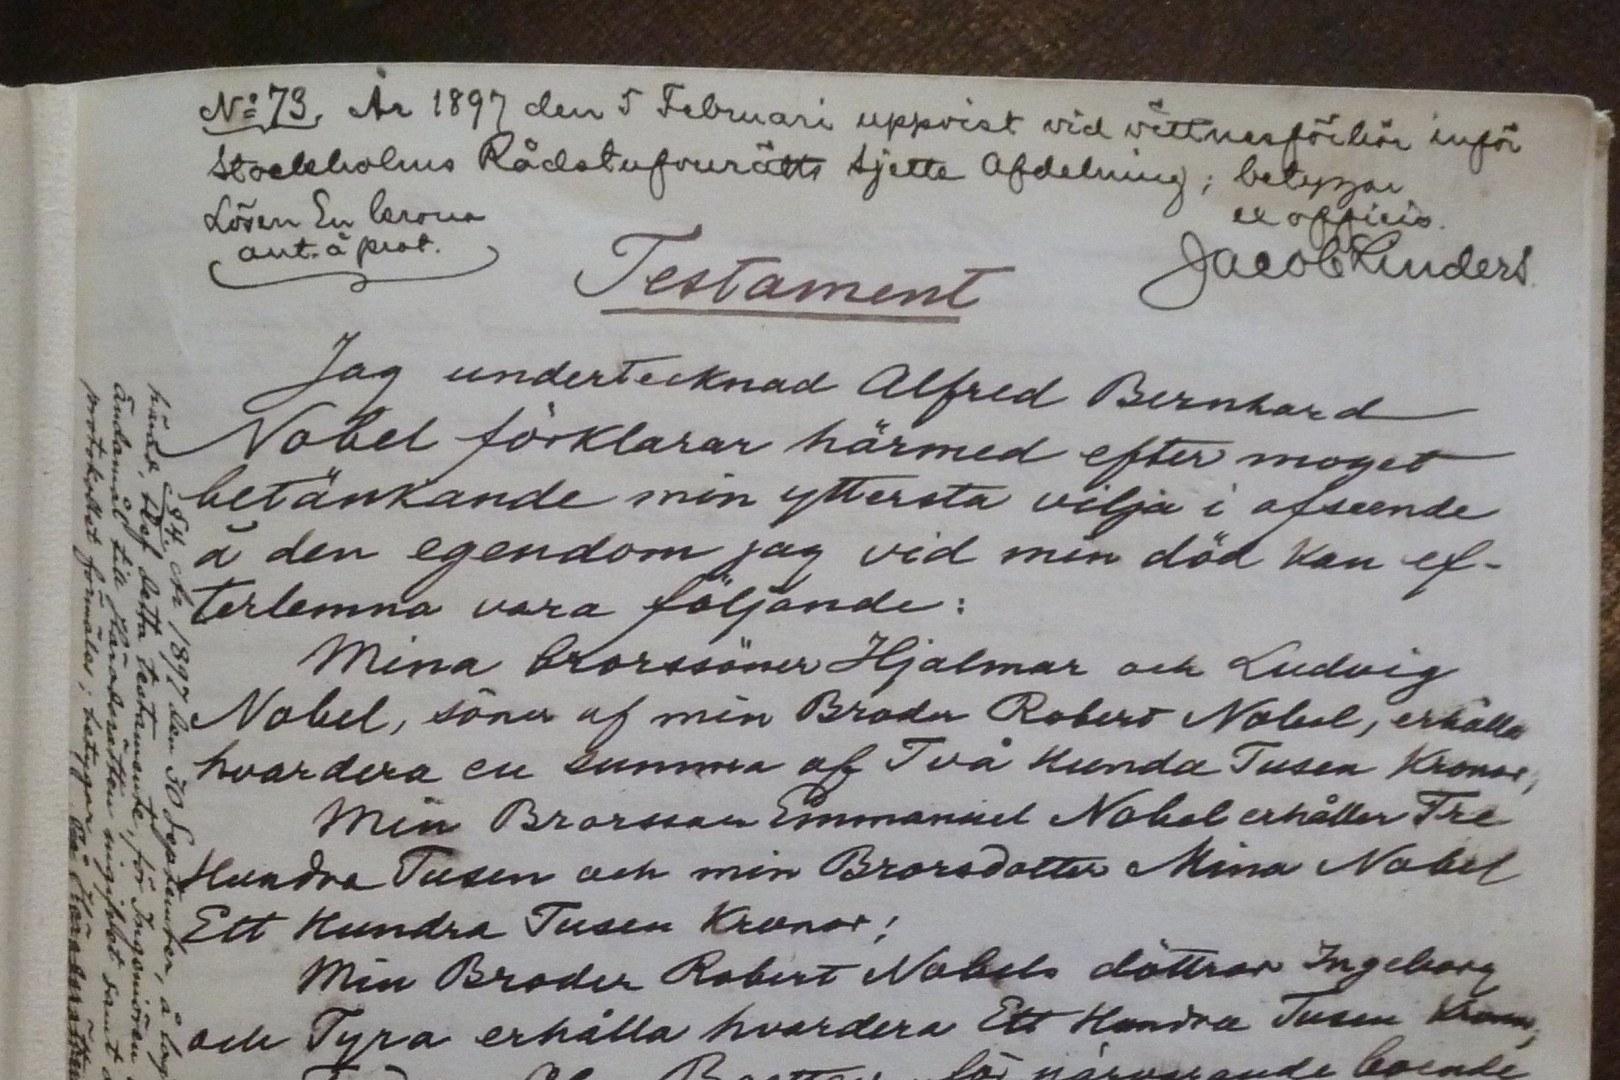 No 73. År 1897 den 5 Februari uppvist vid vittnesförhör inför
Stockholms Rådstufvurätts sjette Afdelning; betygar
ex officio.
Lösen En krona
ant. å prot.
Jacob Linders.
Testament
Jag undertecknad Alfred Bernhard
Nobel förklarar härmed efter moget
betänkande min yttersta vilja i afseende
å den egendom jag vid min död kan ef-
terlemna vara följande:
Mina brorssöner Hjalmar och Ludvig
Nobel, söner af min Broder Robert Nobel, erhålla
hvardera en summa af Två Hundra Tusen Kronor;
Min Brorsson Emmanuel Nobel erhåller Tre
Hundra Tusen och min Brorsdotter Mina Nobel
Ett Hundra Tusen Kronor;
Min Broder Robert Nobels döttrar Ingeborg
och Tyra erhålla hvardera Ett Hundra Tusen Kronor;
för närvarande boende
1897 den 30 September, å lag
detta testamente, för Ingeniören
ändamål till Häradsrätten ingifvet samt
protokollet förmäler; betygar På Häradsrättens